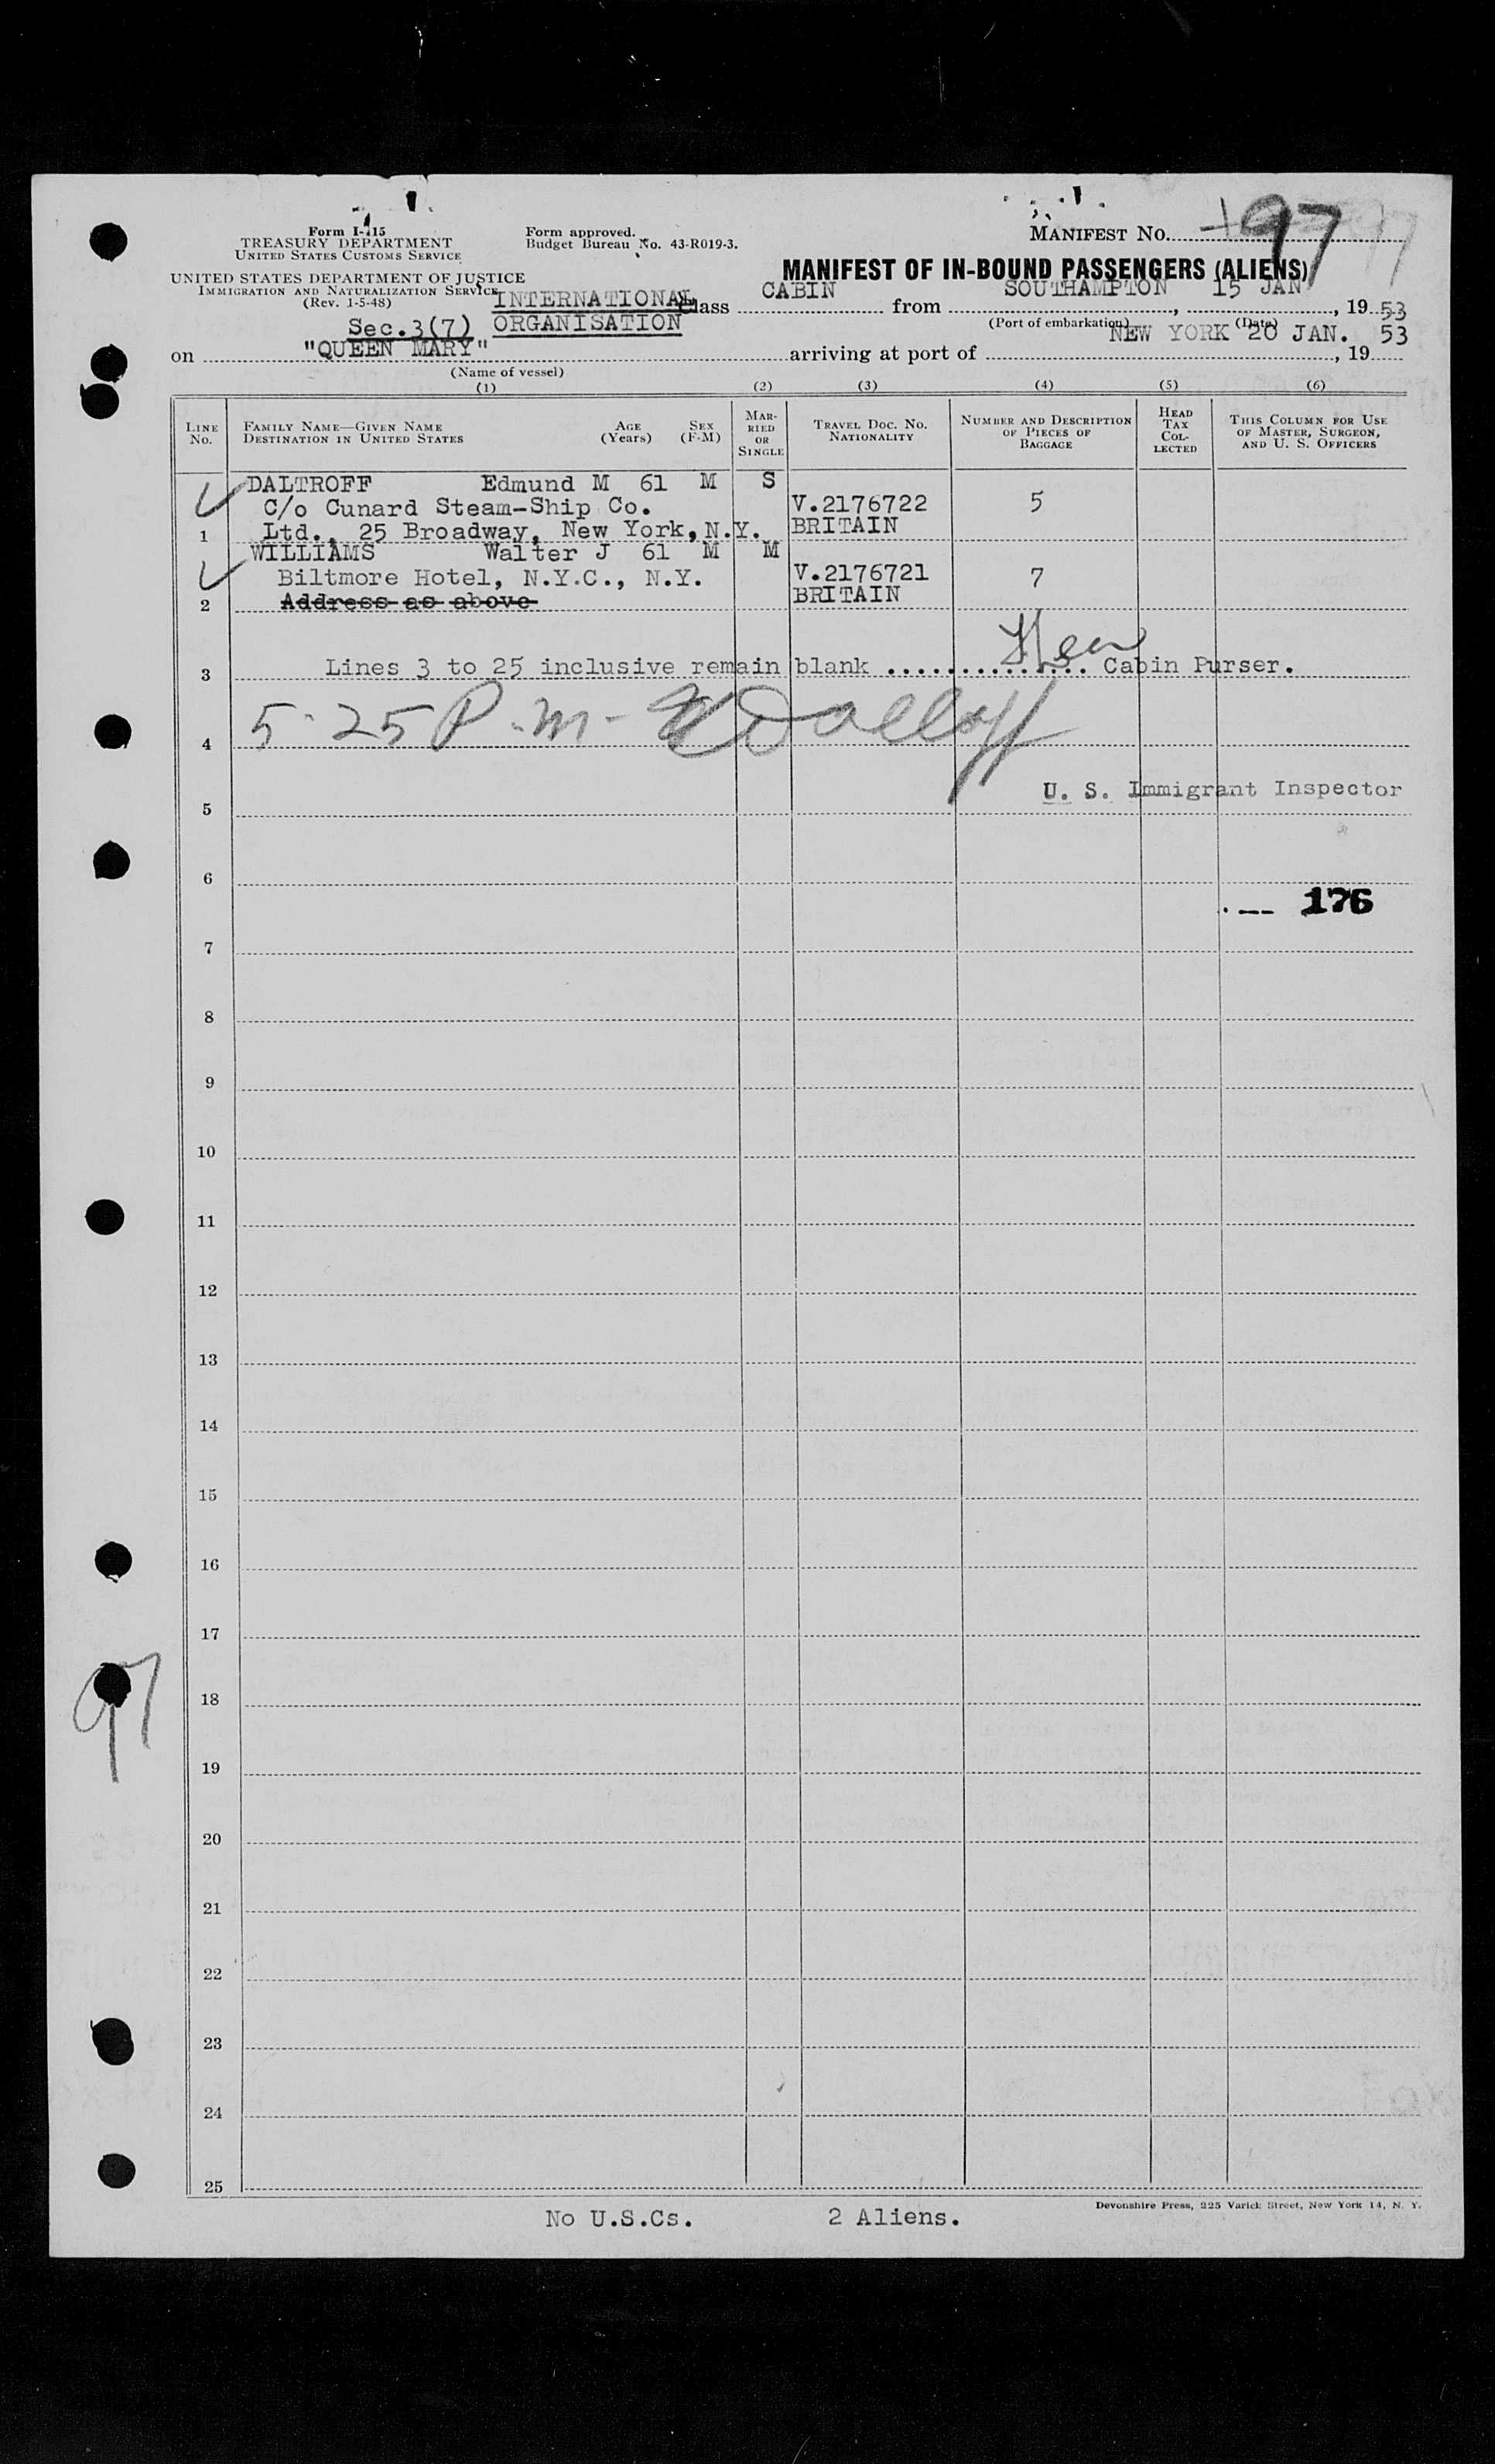 Form I-415
TREASURY DEPARTMENT
UNITED STATES CUSTOMS SERVICE
Form approved.
Budget Bureau No. 43-R019-3.
MANIFEST NO. 97
UNITED STATES DEPARTMENT OF JUSTICE
IMMIGRATION AND NATURALIZATION SERVICE
(Rev. 1-5-48)
MANIFEST OF IN-BOUND PASSENGERS (ALIENS)
INTERNATIONAL
ORGANISATION
Sec.3(7)
Class CABIN from SOUTHAMPTON, 15 JAN, 1953
(Port of embarkation) (Date)
on "QUEEN MARY" arriving at port of NEW YORK 20 JAN., 19 53
(Name of vessel)
(1) (2) (3) (4) (5) (6)
LINE NO.
FAMILY NAME—GIVEN NAME
DESTINATION IN UNITED STATES
AGE (Years)
SEX (F-M)
MARRIED OR SINGLE
TRAVEL DOC. NO.
NATIONALITY
NUMBER AND DESCRIPTION OF PIECES OF BAGGAGE
HEAD TAX COLLECTED
THIS COLUMN FOR USE OF MASTER, SURGEON, AND U. S. OFFICERS
DALTROFF Edmund M 61 M S
C/o Cunard Steam-Ship Co. V.2176722 5
1 Ltd., 25 Broadway, New York, N.Y. BRITAIN
WILLIAMS Walter J 61 M M
Biltmore Hotel, N.Y.C., N.Y. V.2176721 7
2 Address as above BRITAIN
3 Lines 3 to 25 inclusive remain blank ............... Cabin Purser.
4 5-25 P.m-
U. S. Immigrant Inspector
5
6
176
7
8
9
10
11
12
13
14
15
16
17
97
18
19
20
21
22
23
24
25
No U.S.Cs. 2 Aliens.
Devonshire Press, 225 Varick Street, New York 14, N. Y.